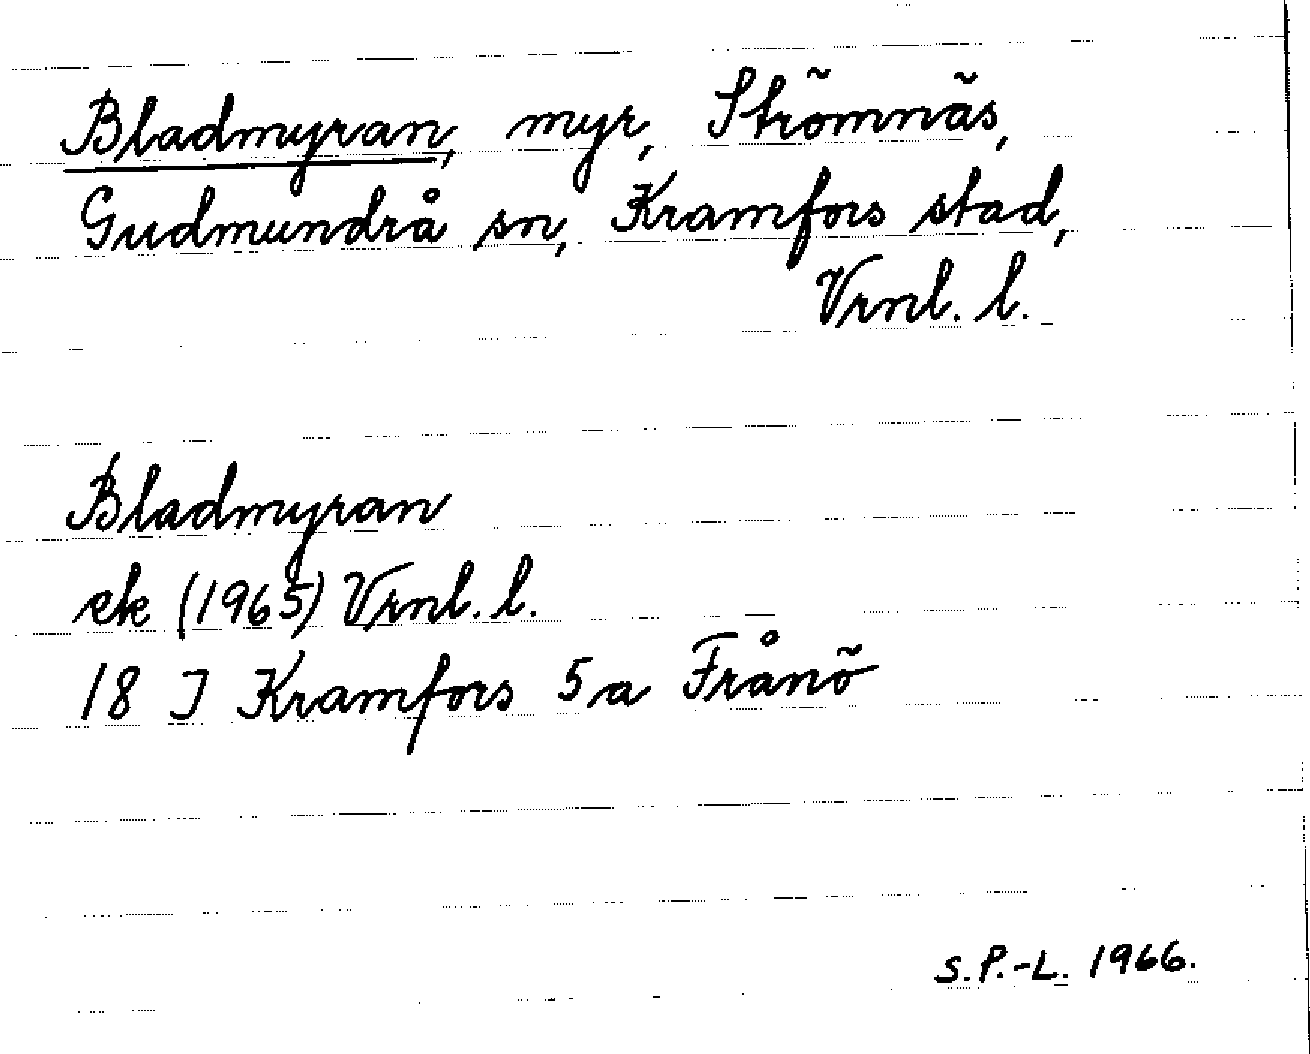 Bladmyran, myr, Strömnäs,
Gudmundrå sn, Kramfors stad,
Vrnl. l.
Bladmyran
ek (1965) Vrnl. l.
18 J Kramfors 5a Frånö
S.P.-L. 1966.